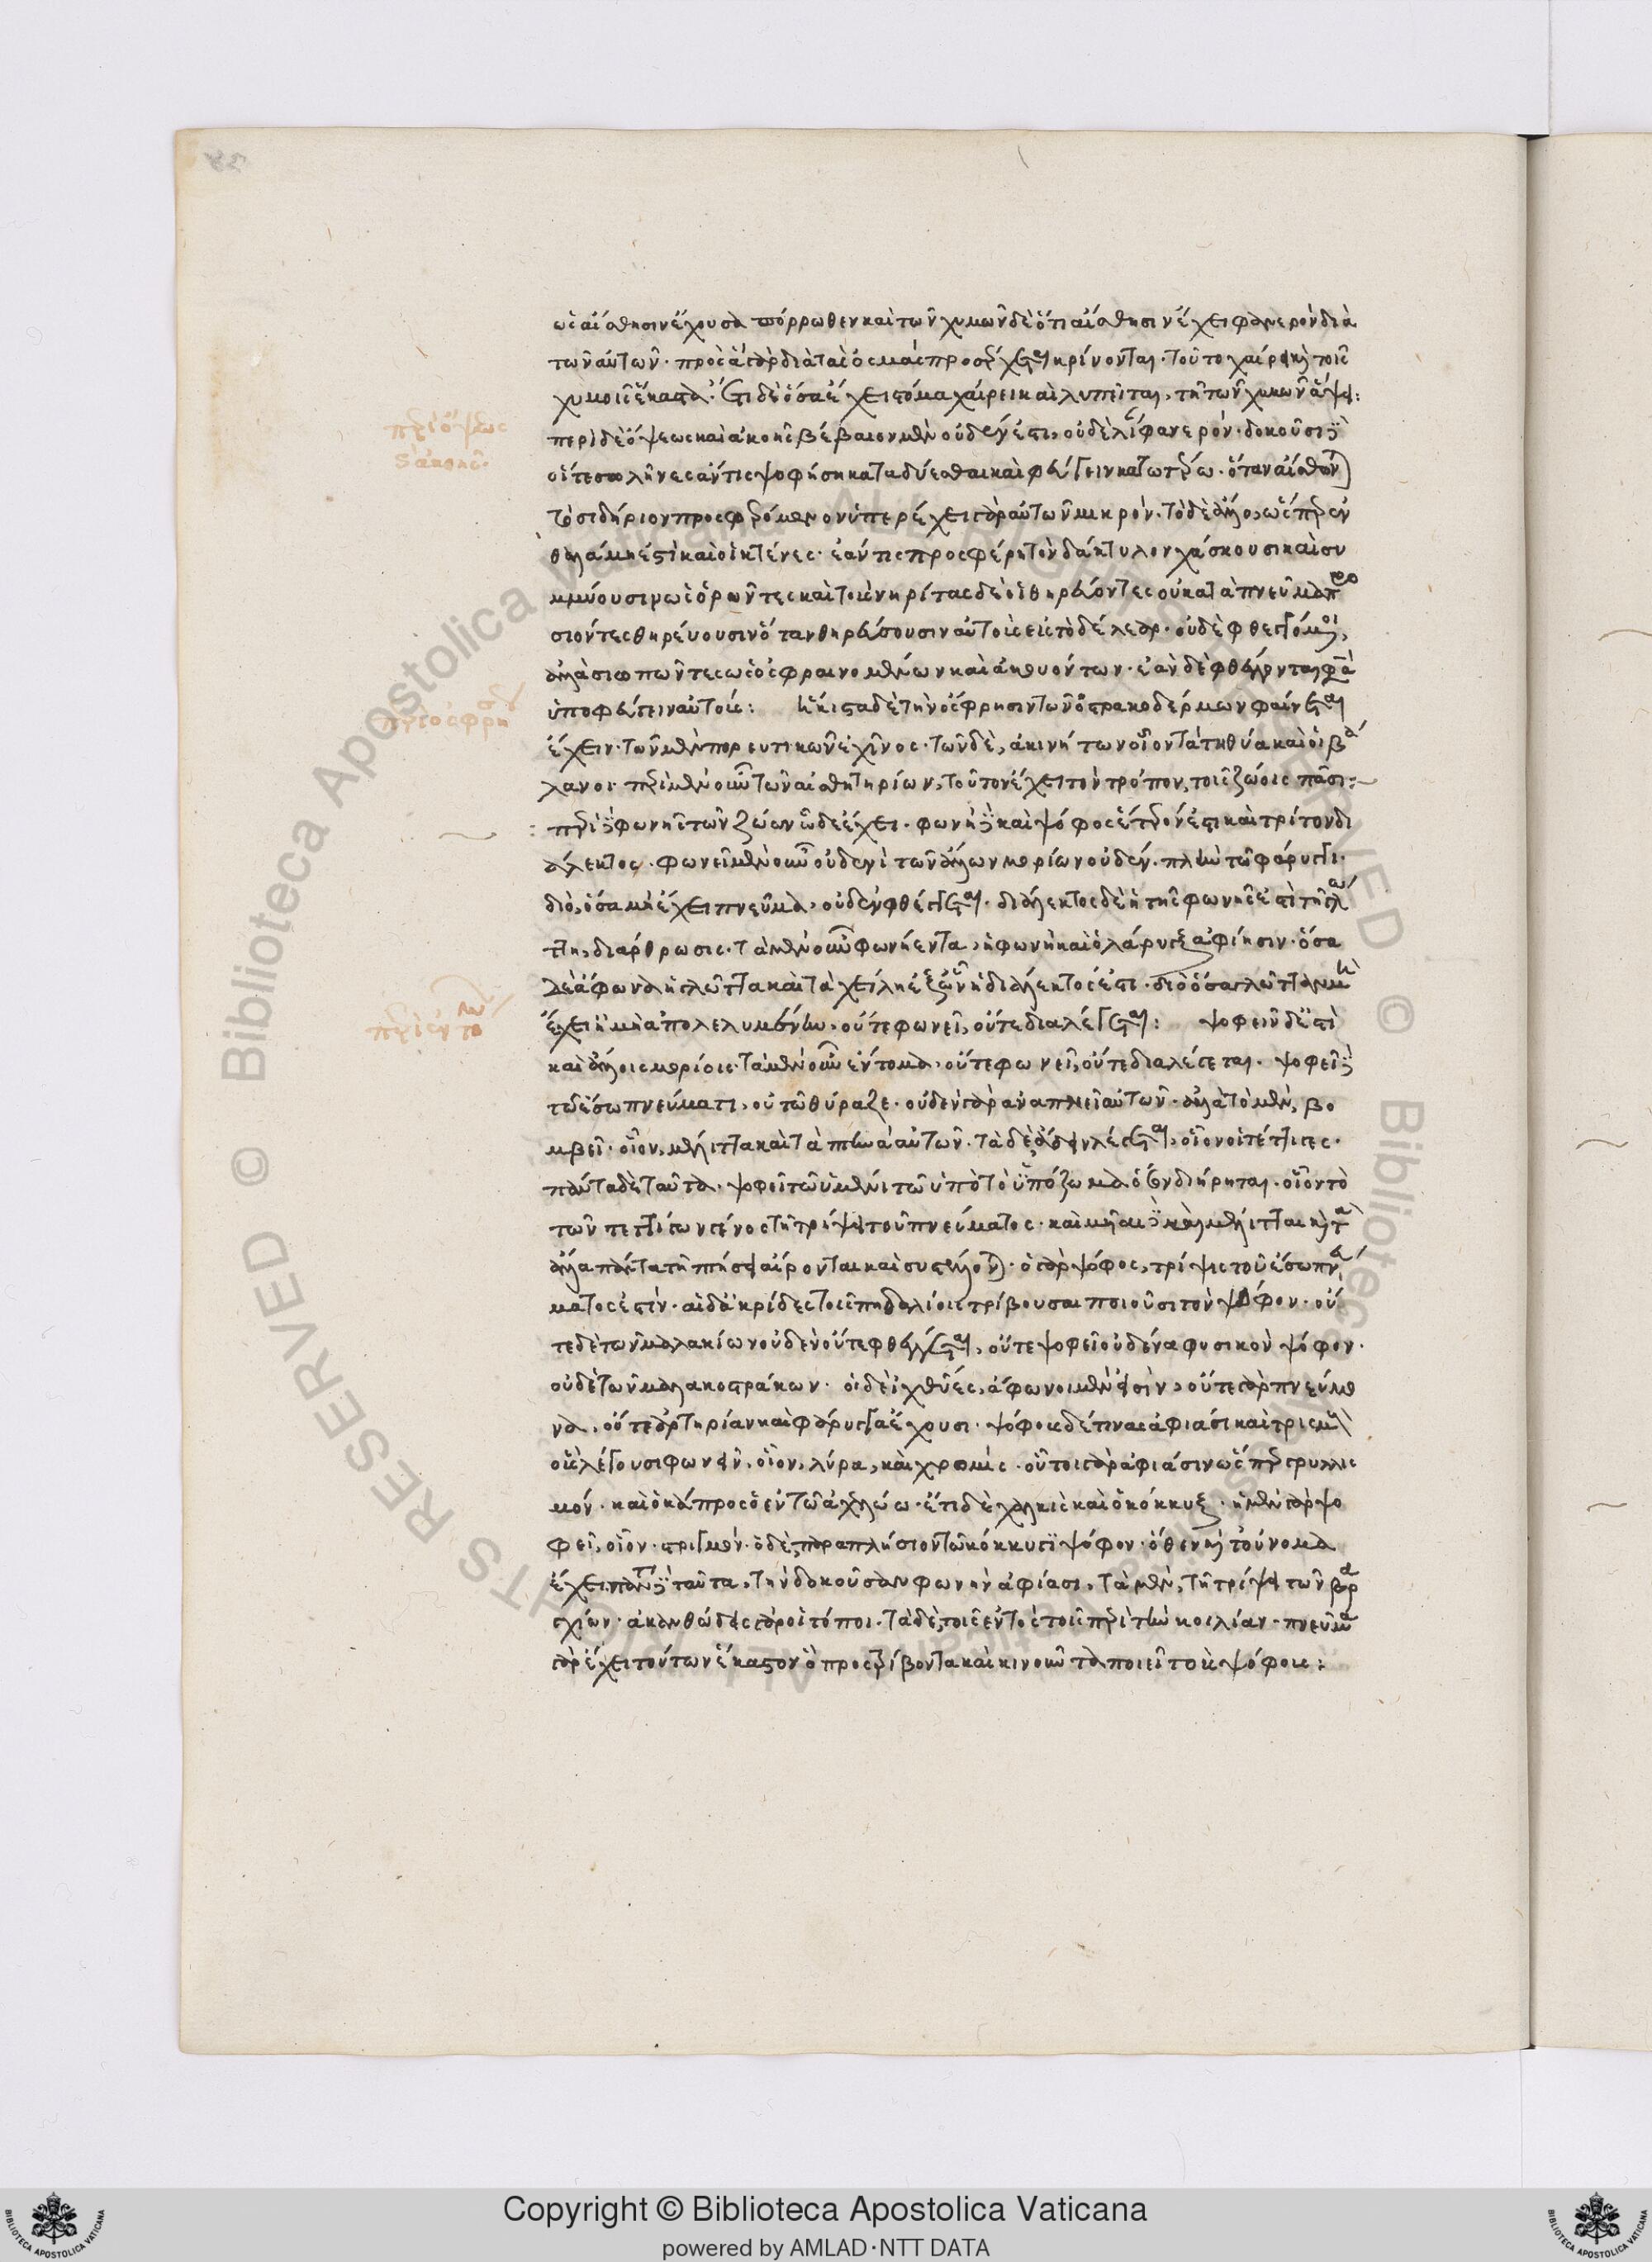 ὡς αἴσθησιν ἔχουσα πόρρωθεν καὶ τῶν χυμῶν δὲ ὅτι αἴσθησιν ἔχει φανερὸν διὰ
τῶν αὐτῶν · πρὸς ἃ γὰρ διὰ τὰς ὀσμὰς προσέρχεται κρίνονται · τούτο χαίρει καὶ τοῖς
χυμοῖς ἕκαστα · ἔτι δὲ ὅσα ἔχει στόμα χαίρει καὶ λυπεῖται, τῇ τῶν χυμῶν ἅψει :
περὶ δὲ ὄψεως καὶ ἀκοῆς βέβαιον μὲν οὐδέν ἐστι, οὐδὲ λίαν φανερόν · δοκοῦσι δὲ
οἵ τε σωλῆνες ἄν τις ψοφήσῃ καταδύεσθαι καὶ φεύγειν κατωτέρω · ὅταν αἴσθωνται
τὸ σιδήριον προσφερόμενον ὑπερέχει γὰρ αὐτῶν μικρόν · τὸ δὲ ἄλλο, ὥσπερ ἐν
θαλάμῃ ἐστὶ καὶ οἱ κτένες · ἐάν τις προσφέρῃ τὸν δάκτυλον χάσκουσι καὶ συ
μμύουσιν ὡς ὁρῶντες καὶ τοὺς νηρίτας δὲ οἱ θηρεύοντες οὐ κατὰ πνεῦμα προ
σιόντες θηρεύουσιν ὅταν θηρεύσουσιν αὐτοὺς εἰς τὸ δέλεαρ · οὐδὲ φθεγγόμενοι,
ἀλλὰ σιωπῶντες ὡς ὀσφραινομένων καὶ ἀκουόντων · ἐὰν δὲ φθέγγωνται φασὶ
ὑποφεύγειν αὐτούς : ἥκιστα δὲ τὴν ὄσφρησιν τῶν ὀστρακοδέρμων φαίνεται
ἔχειν · τῶν μὲν πορευτικῶν ἐχῖνος · τῶν δὲ, ἀκινήτων οἷον τὰ τηθύα καὶ οἱ βά
λανοι · περὶ μὲν οὖν τῶν αἰσθητηρίων, τοῦτον ἔχει τὸν τρόπον, τοῖς ζώοις πᾶσι :
περὶ δὲ φωνῆς τῶν ζώων ὧδε ἔχει · φωνὴ δὲ καὶ ψόφος ἕτερόν ἐστι καὶ τρίτον δι
άλεκτος · φωνεῖ μὲν οὖν οὐδενὶ τῶν ἄλλων μορίων οὐδέν · πλὴν τῷ φάρυγγι ·
διὸ, ὅσα μὴ ἔχει πνεῦμα, οὐδὲν φθέγγεται · διάλεκτος δὲ ἡ τῆς φωνῆς ἐστὶ τῇ γλώ
ττῃ, διάρθρωσις · τὰ μὲν οὖν φωνήεντα, ἡ φωνὴ καὶ ὁ λάρυγξ ἀφίησιν · ὅσα
δὲ ἄφωνα ἡ γλῶττα καὶ τὰ χείλη ἐξ ὧν ἡ διάλεκτός ἐστι · διὸ ὅσα γλῶτταν μὴ
ἔχει ἢ μὴ ἀπολελυμένην, οὔτε φωνεῖ, οὔτε διαλέγεται : ψοφεῖν δέ ἐστι
καὶ ἄλλοις μορίοις · τὰ μὲν οὖν ἔντομα, οὔτε φωνεῖ, οὔτε διαλέγεται · ψοφεῖ δὲ
τῷ ἔσω πνεύματι, οὐ τῷ θύραζε · οὐδὲν γὰρ ἀναπνεῖ αὐτῶν · ἀλλὰ τὸ μὲν, βο
μβεῖ · οἷον, μέλιττα καὶ τὰ πτηνὰ αὐτῶν · τὰ δὲ ᾄδειν λέγεται, οἷον οἱ τέττιγες ·
πάντα δὲ ταῦτα · ψοφεῖ τῷ ὑμένι τῷ ὑπὸ τὸ ὑπόζωμα ὅσων διήρηται · οἷον τὸ
τῶν τεττίγων γένος τῇ τρίψει τοῦ πνεύματος · καὶ μυῖαι δὲ καὶ μέλιτται καὶ τὰ
ἄλλα πάντα τῇ πτήσει αἴρονται καὶ συστέλλονται · ὁ γὰρ ψόφος, τρίψις τοῦ ἔσω πνεύ
ματος ἐστίν · αἱ δ' ἀκρίδες τοῖς πηδαλίοις τρίβουσαι ποιοῦσι τὸν ψόφον · οὔ
τε δὲ τῶν μαλακίων οὐδὲν οὔτε φθέγγεται, οὔτε ψοφεῖ οὐδένα φυσικὸν ψόφον ·
οὐδὲ τῶν μαλακοστράκων · οἱ δὲ ἰχθύες, ἄφωνοι μὲν εἰσὶν, οὔτε γὰρ πνεύμο
να, οὔτε ἀρτηρίαν καὶ φάρυγγα ἔχουσι · ψόφους δέ τινας ἀφιᾶσι καὶ τριγμοὺς
οὓς λέγουσι φωνεῖν, οἷον, λύρα, καὶ χρομίς · οὗτοι γὰρ ἀφιᾶσιν ὥσπερ γρυλλισ
μόν · καὶ ὁ κάπρος ὁ ἐν τῷ ἀχελώω · ἔτι δὲ χαλκὶς καὶ ὁ κόκκυξ · ἡ μὲν γὰρ ψο
φεῖ, οἷον · στριγμόν · ὁ δὲ, παραπλήσιον τῷ κόκκυγι ψόφον · ὅθεν καὶ τοὔνομα
ἔχει πάντα δὲ ταῦτα, τὴν δοκοῦσαν φωνὴν ἀφίασι, τὰ μὲν, τῇ τρίψει τῶν βραγ
χίων · ἀκανθώδεις γὰρ οἱ τόποι · τὰ δὲ, τοῖς ἐντὸς τοῖς περὶ τὴν κοιλίαν · πνεῦμα
γὰρ ἔχει τούτων ἕκαστον ὃ προστρίβοντα καὶ κινοῦντα ποιεῖ τοὺς ψόφους :
περὶ ὄψεως
καὶ ἀκοῆς ·
περὶ ὀσφρήσεως
περὶ ἐντόμων
© Biblioteca Apostolica Vaticana ALL RIGHTS RESERVED
Copyright © Biblioteca Apostolica Vaticana
powered by AMLAD·NTT DATA
BIBLIOTECA APOSTOLICA VATICANA
BIBLIOTECA APOSTOLICA VATICANA